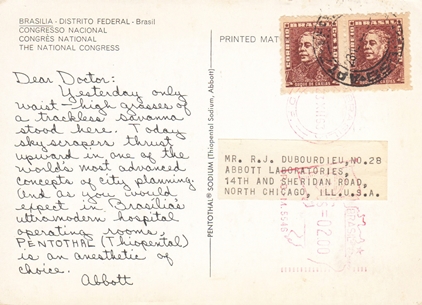 BRASILIA - DISTRITO FEDERAL - Brasil
CONGRESSO NACIONAL
CONGRÈS NATIONAL
THE NATIONAL CONGRESS
PRINTED MAT
CORREIO
BRASIL
DUQUE DE CAXIAS
CORREIO
BRASIL
Dear Doctor:
Yesterday only
waist-high grasses of
a trackless savanna
stood here. Today
skyscrapers thrust
upward in one of the
world's most advanced
concepts of city planning.
And as you would
expect in Brasilia's
ultramodern hospital
operating rooms,
PENTOTHAL (Thiopental)
is an anesthetic of
choice.
Abbott
PENTOTHAL® SODIUM (Thiopental Sodium, Abbott)
MR. R.J. DUBOURDIEU,NO.28
ABBOTT LABORATORIES,
14TH AND SHERIDAN ROAD,
NORTH CHICAGO, ILL.U.S.A.